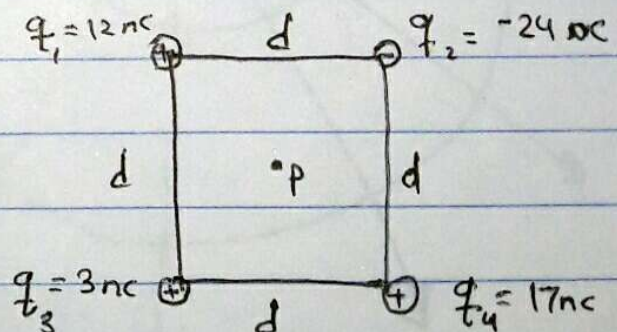 q₁ = 12 nc d q₂ = -24 nc
d .P d
q₃ = 3nc d q₄ = 17nc